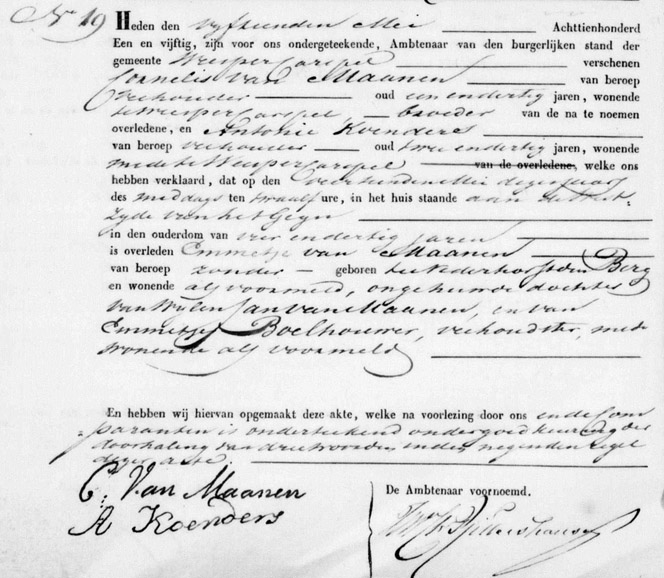 No 19 Heden den vyftienden Mei Achttienhonderd
Een en vijftig, zijn voor ons ondergeteekende, Ambtenaar van den burgerlijken stand der
gemeente Weespercarspel verschenen
Cornelis van Maanen van beroep
veehouder oud een endertig jaren, wonende
te Weespercarspel, broeder van de na te noemen
overledene, en Antonie Koenders
van beroep veehouder oud twee endertig jaren, wonende
mede te Weespercarspel van de overledene, welke ons
hebben verklaard, dat op den Veertienden Mei dezes jaars
des middags ten twaalf ure, in het huis staande aan de
zyde van het Geyn
in den ouderdom van vier endertig jaren
is overleden Emmetje van Maanen
van beroep zonder geboren te Nederhorst den Berg
en wonende als voormeld, ongehuwde dochter
van wylen Jan van Maanen, en van
Emmetje Boelhouwer, veehoudster, mede
wonende als voormeld
En hebben wij hiervan opgemaakt deze akte, welke na voorlezing door ons en de Com
paranten is onderteekend onder goedkeuring der
doorhaling van drie woorden in den negenden regel
dezer acte
C: Van Maanen
A Koenders
De Ambtenaar voornoemd.